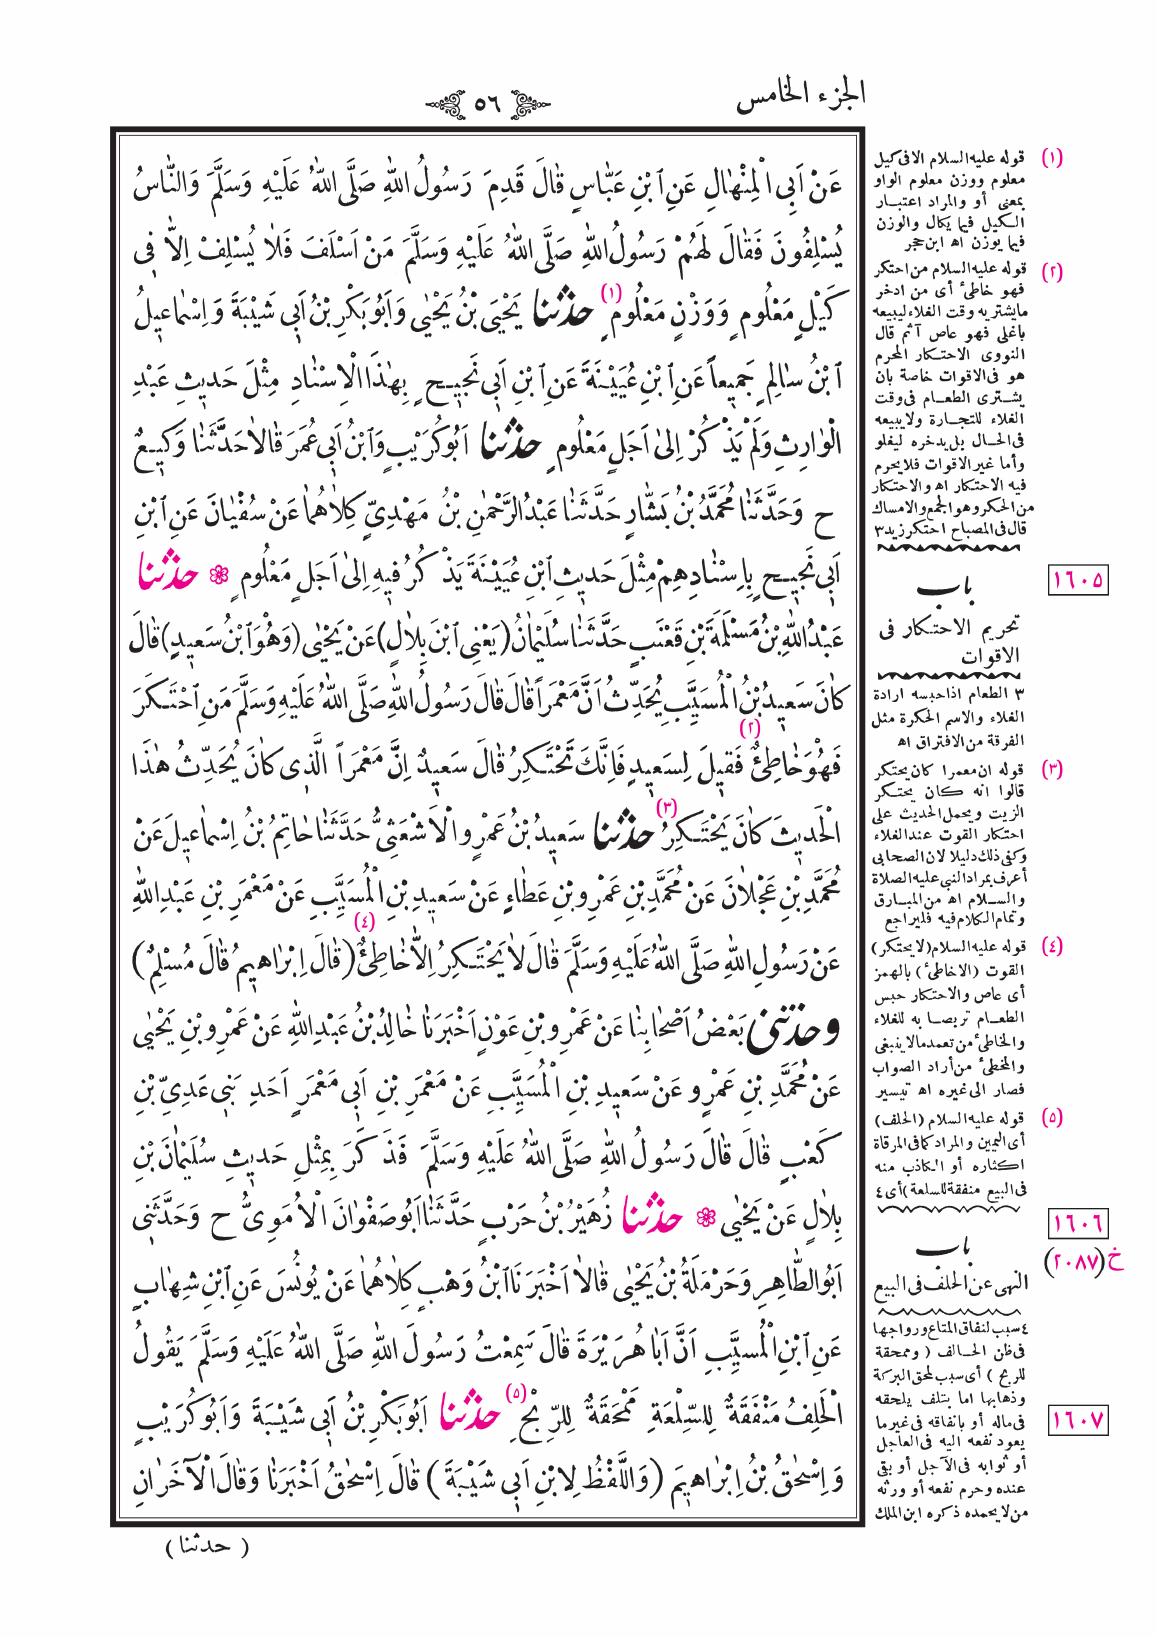 الجزء الخامس
٥٦
عَنْ اَبِى الْمِنْهَالِ عَنِ ابْنِ عَبَّاسٍ قَالَ قَدِمَ رَسُولُ اللهِ صَلَّى اللهُ عَلَيْهِ وَسَلَّمَ وَالنَّاسُ
يُسْلِفُونَ فَقَالَ لَهُمْ رَسُولُ اللهِ صَلَّى اللهُ عَلَيْهِ وَسَلَّمَ مَنْ اَسْلَفَ فَلَا يُسْلِفْ اِلَّا فِى
كَيْلٍ مَعْلُومٍ وَوَزْنٍ مَعْلُومٍ (١) حدثنا يَحْيَى بْنُ يَحْيٰى وَاَبُو بَكْرِ بْنُ اَبِى شَيْبَةَ وَاِسْمَاعِيلُ
ابْنُ سَالِمٍ جَمِيعاً عَنِ ابْنِ عُيَيْنَةَ عَنِ ابْنِ اَبِى نَجِيحٍ بِهٰذَا الْاِسْنَادِ مِثْلَ حَدِيثِ عَبْدِ
الْوَارِثِ وَلَمْ يَذْكُرْ اِلىٰ اَجَلٍ مَعْلُومٍ حدثنا اَبُو كُرَيْبٍ وَابْنُ اَبِى عُمَرَ قَالَا حَدَّثَنَا وَكِيعٌ
ح وَحَدَّثَنَا مُحَمَّدُ بْنُ بَشَّارٍ حَدَّثَنَا عَبْدُ الرَّحْمٰنِ بْنُ مَهْدِيٍّ كِلَاهُمَا عَنْ سُفْيَانَ عَنِ ابْنِ
اَبِى نَجِيحٍ بِاِسْنَادِهِمْ مِثْلَ حَدِيثِ ابْنِ عُيَيْنَةَ يَذْكُرُ فِيهِ اِلىٰ اَجَلٍ مَعْلُومٍ ۞ حدثنا
عَبْدُ اللهِ بْنُ مَسْلَمَةَ بْنِ قَعْنَبٍ حَدَّثَنَا سُلَيْمَانُ (يَعْنِى ابْنَ بِلَالٍ) عَنْ يَحْيٰى (وَهُوَ ابْنُ سَعِيدٍ) قَالَ
كَانَ سَعِيدُ بْنُ الْمُسَيَّبِ يُحَدِّثُ اَنَّ مَعْمَراً قَالَ قَالَ رَسُولُ اللهِ صَلَّى اللهُ عَلَيْهِ وَسَلَّمَ مَنِ احْتَكَرَ
فَهُوَ خَاطِئٌ (٢) فَقِيلَ لِسَعِيدٍ فَاِنَّكَ تَحْتَكِرُ قَالَ سَعِيدٌ اِنَّ مَعْمَراً الَّذِى كَانَ يُحَدِّثُ هٰذَا
الْحَدِيثَ كَانَ يَحْتَكِرُ (٣) حدثنا سَعِيدُ بْنُ عَمْرٍو الْاَشْعَثِىُّ حَدَّثَنَا حَاتِمُ بْنُ اِسْمَاعِيلَ عَنْ
مُحَمَّدِ بْنِ عَجْلَانَ عَنْ مُحَمَّدِ بْنِ عَمْرِو بْنِ عَطَاءٍ عَنْ سَعِيدِ بْنِ الْمُسَيَّبِ عَنْ مَعْمَرِ بْنِ عَبْدِ اللهِ
عَنْ رَسُولِ اللهِ صَلَّى اللهُ عَلَيْهِ وَسَلَّمَ قَالَ لَا يَحْتَكِرُ اِلَّا خَاطِئٌ (٤) (قَالَ اِبْرَاهِيمُ قَالَ مُسْلِمٌ)
وحدثنى بَعْضُ اَصْحَابِنَا عَنْ عَمْرِو بْنِ عَوْنٍ اَخْبَرَنَا خَالِدُ بْنُ عَبْدِ اللهِ عَنْ عَمْرِو بْنِ يَحْيٰى
عَنْ مُحَمَّدِ بْنِ عَمْرٍو عَنْ سَعِيدِ بْنِ الْمُسَيَّبِ عَنْ مَعْمَرِ بْنِ اَبِى مَعْمَرٍ اَحَدِ بَنِى عَدِيِّ بْنِ
كَعْبٍ قَالَ قَالَ رَسُولُ اللهِ صَلَّى اللهُ عَلَيْهِ وَسَلَّمَ فَذَكَرَ بِمِثْلِ حَدِيثِ سُلَيْمَانَ بْنِ
بِلَالٍ عَنْ يَحْيٰى ۞ حدثنا زُهَيْرُ بْنُ حَرْبٍ حَدَّثَنَا اَبُو صَفْوَانَ الْاُمَوِىُّ ح وَحَدَّثَنِى
اَبُو الطَّاهِرِ وَحَرْمَلَةُ بْنُ يَحْيٰى قَالَا اَخْبَرَنَا ابْنُ وَهْبٍ كِلَاهُمَا عَنْ يُونُسَ عَنِ ابْنِ شِهَابٍ
عَنِ ابْنِ الْمُسَيَّبِ اَنَّ اَبَا هُرَيْرَةَ قَالَ سَمِعْتُ رَسُولَ اللهِ صَلَّى اللهُ عَلَيْهِ وَسَلَّمَ يَقُولُ
الْحَلِفُ مَنْفَقَةٌ لِلسِّلْعَةِ مَمْحَقَةٌ لِلرِّبْحِ (٥) حدثنا اَبُو بَكْرِ بْنُ اَبِى شَيْبَةَ وَاَبُو كُرَيْبٍ
وَاِسْحٰقُ بْنُ اِبْرَاهِيمَ (وَاللَّفْظُ لِابْنِ اَبِى شَيْبَةَ) قَالَ اِسْحٰقُ اَخْبَرَنَا وَقَالَ الْآخَرَانِ
( حدثنا )
(١) قوله عليه السلام الا فى كيل
معلوم ووزن معلوم الواو
بمعنى أو والمراد اعتبار
الكيل فيما يكال والوزن
فيما يوزن اه ابن حجر
(٢) قوله عليه السلام من احتكر
فهو خاطئ أى من ادخر
مايشتريه وقت الغلاء ليبيعه
باغلى فهو عاص آثم قال
النووى الاحتكار المحرم
هو فى الاقوات خاصة بان
يشترى الطعام فى وقت
الغلاء للتجارة ولا يبيعه
فى الحال بل يدخره ليغلو
وأما غير الاقوات فلا يحرم
فيه الاحتكار اه والاحتكار
من الحكر وهو الجمع والامساك
قال فى المصباح احتكر زيد ٣
١٦٠٥
باب
تحريم الاحتكار فى
الاقوات
٣ الطعام اذا حبسه ارادة
الغلاء والاسم الحكرة مثل
الفرقة من الافتراق اه
(٣) قوله ان معمرا كان يحتكر
قالوا انه كان يحتكر
الزيت ويحمل الحديث على
احتكار القوت عند الغلاء
وكفى ذلك دليلا لان الصحابى
أعرف بمراد النبى عليه الصلاة
والسلام اه من المبارق
وتمام الكلام فيه فليراجع
(٤) قوله عليه السلام (لا يحتكر)
القوت (الا خاطئ) بالهمز
أى عاص والاحتكار حبس
الطعام تربصا به للغلاء
والخاطئ من تعمد ما لا ينبغى
والمخطئ من أراد الصواب
فصار الى غيره اه تيسير
(٥) قوله عليه السلام (الحلف)
أى اليمين والمراد كما فى المرقاة
اكثاره أو الكاذب منه
فى البيع منفقة للسلعة) أى ٤
١٦٠٦
خ (٢٠٨٧)
باب
النهى عن الحلف فى البيع
٤ سبب لنفاق المتاع ورواجها
فى ظن الحالف ( وممحقة
للربح ) أى سبب لمحق البركة
وذهابها اما بتلف يلحقه
فى ماله أو بانفاقه فى غير ما
يعود نفعه اليه فى العاجل
أو ثوابه فى الآجل أو بقى
عنده وحرم نفعه أو ورثه
من لا يحمده ذكره ابن الملك
١٦٠٧